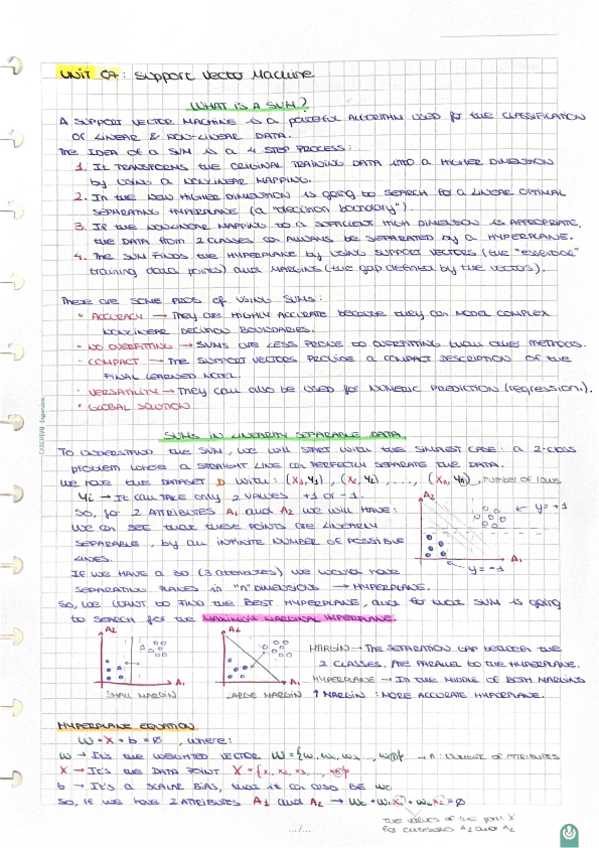 UNIT 07: Support Vector Machine
WHAT IS A SVM?
A SUPPORT VECTOR MACHINE IS A powerful ALGORITHM USED for THE CLASSIFICATION
OF LINEAR & NON-LINEAR DATA.
THE IDEA OF A SVM IS A 4 STEP PROCESS:
1. IT TRANSFORMS THE ORIGINAL TRAINING DATA INTO A HIGHER DIMENSION
by USING A NONLINEAR MAPPING.
2. IN THE NEW HIGHER DIMENSION IS GOING TO SEARCH FOR A LINEAR OPTIMAL
SEPARATING HYPERPLANE (a "decision boundary").
3. IF THE NONLINEAR MAPPING TO A SUFFICIENT HIGH DIMENSION IS APPROPRIATE,
THE DATA FROM 2 CLASSES can ALWAYS BE SEPARATED by A HYPERPLANE.
4. THE SVM FINDS THE HYPERPLANE by USING SUPPORT VECTORS (the "essential"
training data points) and MARGINS (the gap defined by the vectors).
There are SOME PROS of USING SVMS:
• ACCURACY → They are HIGHLY ACCURATE because they can MODEL COMPLEX
NONLINEAR DECISION BOUNDARIES.
• NO OVERFITTING → SVMS are LESS PRONE TO OVERFITTING than other METHODS.
• COMPACT → THE SUPPORT VECTORS PROVIDE A COMPACT DESCRIPTION OF the
FINAL LEARNED MODEL.
• VERSATILITY → They can also be USED for NUMERIC PREDICTION (regression).
• GLOBAL SOLUTION
SVMS IN LINEARLY SEPARABLE DATA
TO UNDERSTAND THE SVM, we will START with THE SIMPLEST CASE: a 2-class
problem where a STRAIGHT LINE can PERFECTLY SEPARATE THE DATA.
We have THE DATASET D with: (X1,Y1), (X2,Y2), ..., (Xn,Yn), number of rows
Yi → It can TAKE only 2 VALUES +1 or -1.
SO, for 2 ATTRIBUTES A1 and A2 we WILL HAVE:
We can see that these POINTS are LINEARLY
SEPARABLE, by an INFINITE NUMBER OF POSSIBLE
LINES.
A2
y=+1
A1
y=-1
IF WE HAVE A 3D (3 attributes) WE WOULD HAVE
SEPARATING PLANES in "n" DIMENSIONS → HYPERPLANE.
SO, WE WANT TO FIND THE BEST HYPERPLANE, and for that SVM IS going
to SEARCH for THE MAXIMUM MARGINAL HYPERPLANE.
A2
A1
SMALL MARGIN
A2
A1
LARGE MARGIN
MARGIN → THE SEPARATION GAP BETWEEN THE
2 CLASSES. Are PARALLEL to the HYPERPLANE.
HYPERPLANE → IN THE MIDDLE OF BOTH MARGINS
↑ MARGIN : MORE ACCURATE HYPERPLANE.
HYPERPLANE EQUATION
W · X + b = 0 , where:
W → It's the WEIGHTED VECTOR W = {w1, w2, w3, ..., wn} → n: NUMBER OF ATTRIBUTES
X → It's the DATA POINT X = {x1, x2, x3, ..., xn}
b → It's a SCALAR BIAS, that it can also BE w0
SO, if we have 2 ATTRIBUTES A1 and A2 → W0 + W1X1 + W2X2 = 0
the values of the point X
for attributes A1 and A2
.../...